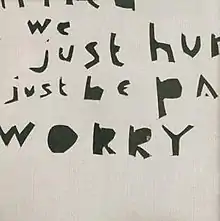 we
just hun
just be pa
WORRY